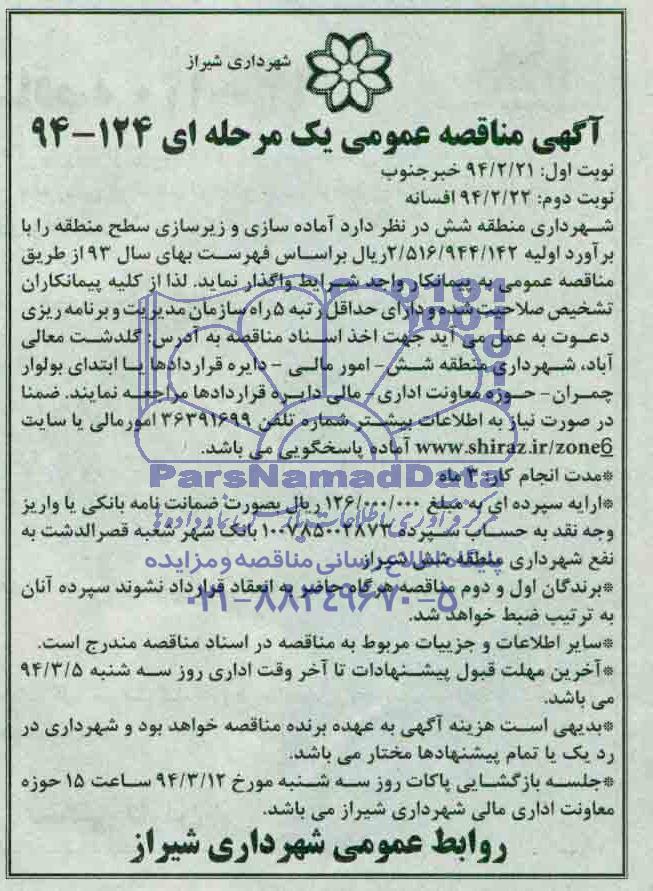 شهرداری شیراز
آگهی مناقصه عمومی یک مرحله ای ۱۲۴-۹۴
نوبت اول: ۹۴/۲/۲۱ خبرجنوب
نوبت دوم: ۹۴/۲/۲۲ افسانه
شهرداری منطقه شش در نظر دارد آماده سازی و زیرسازی سطح منطقه را با
برآورد اولیه ۲/۵۱۶/۹۴۴/۱۴۲ریال براساس فهرست بهای سال ۹۳ از طریق
مناقصه عمومی به پیمانکار واجد شرایط واگذار نماید. لذا از کلیه پیمانکاران
تشخیص صلاحیت شده و دارای حداقل رتبه ۵ راه سازمان مدیریت و برنامه ریزی
دعوت به عمل می آید جهت اخذ اسناد مناقصه به آدرس: گلدشت معالی
آباد، شهرداری منطقه شش- امور مالی - دایره قراردادها یا ابتدای بولوار
چمران- حوزه معاونت اداری- مالی دایره قراردادها مراجعه نمایند. ضمنا
در صورت نیاز به اطلاعات بیشتر شماره تلفن ۳۶۳۹۱۶۹۹ امورمالی یا سایت
www.shiraz.ir/zone6 آماده پاسخگویی می باشد.
*مدت انجام کار: ۳ ماه
ParsNamadData
*ارایه سپرده ای به مبلغ ۱۲۶/۰۰۰/۰۰۰ ریال بصورت ضمانت نامه بانکی یا واریز
مرکز فرآوری اطلاعات پارس نماد داده ها
وجه نقد به حساب سپرده ۱۰۰۷۸۵۰۰۲۸۷۳ بانک شهر شعبه قصرالدشت به
نفع شهرداری منطقه شش شیراز
پایگاه اطلاع رسانی مناقصه و مزایده
*برندگان اول و دوم مناقصه هرگاه حاضر به انعقاد قرارداد نشوند سپرده آنان
۰۲۱-۸۸۳۴۹۶۷۰-۵
به ترتیب ضبط خواهد شد.
*سایر اطلاعات و جزییات مربوط به مناقصه در اسناد مناقصه مندرج است.
*آخرین مهلت قبول پیشنهادات تا آخر وقت اداری روز سه شنبه ۹۴/۳/۵
می باشد.
*بدیهی است هزینه آگهی به عهده برنده مناقصه خواهد بود و شهرداری در
رد یک یا تمام پیشنهادها مختار می باشد.
*جلسه بازگشایی پاکات روز سه شنبه مورخ ۹۴/۳/۱۲ ساعت ۱۵ حوزه
معاونت اداری مالی شهرداری شیراز می باشد.
روابط عمومی شهرداری شیراز